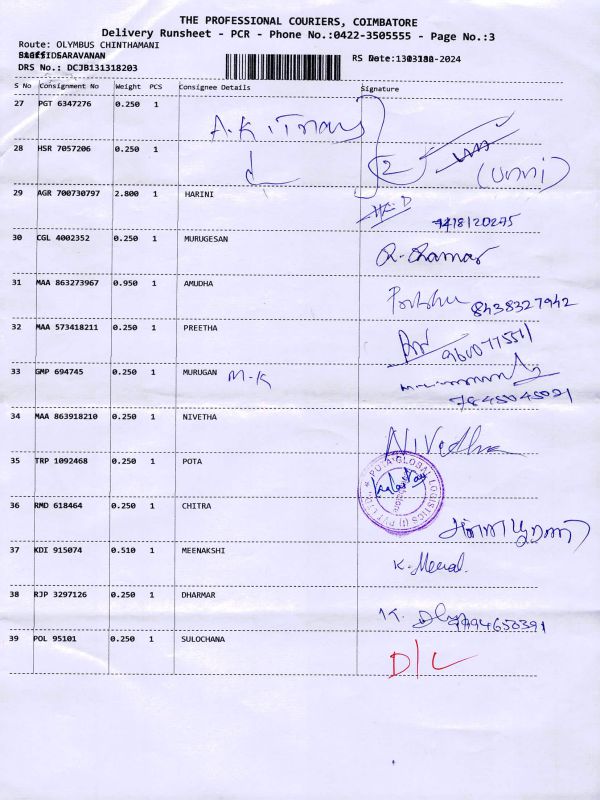 THE PROFESSIONAL COURIERS, COIMBATORE
Delivery Runsheet - PCR - Phone No.:0422-3505555 - Page No.:3
Route: OLYMBUS CHINTHAMANI
SARAVANAN
RS Date: -2024
DRS No.: DCJB131318203
S No Consignment No Weight PCS Consignee Details Signature
27 PGT 6347276 0.250 1
28 HSR 7057206 0.250 1 2 (unni)
29 AGR 700730797 2.800 1 HARINI
30 CGL 4002352 0.250 1 MURUGESAN
31 MAA 863273967 0.950 1 AMUDHA 8438327942
32 MAA 573418211 0.250 1 PREETHA
33 GMP 694745 0.250 1 MURUGAN M-K
7845045021
34 MAA 863918210 0.250 1 NIVETHA Nivedha
35 TRP 1092468 0.250 1 POTA POTA GLOBAL LOGISTICS (I) PVT LTD
36 RMD 618464 0.250 1 CHITRA
37 KDI 915074 0.510 1 MEENAKSHI K.
38 RJP 3297126 0.250 1 DHARMAR K. 9994650391
39 POL 95101 0.250 1 SULOCHANA D/L